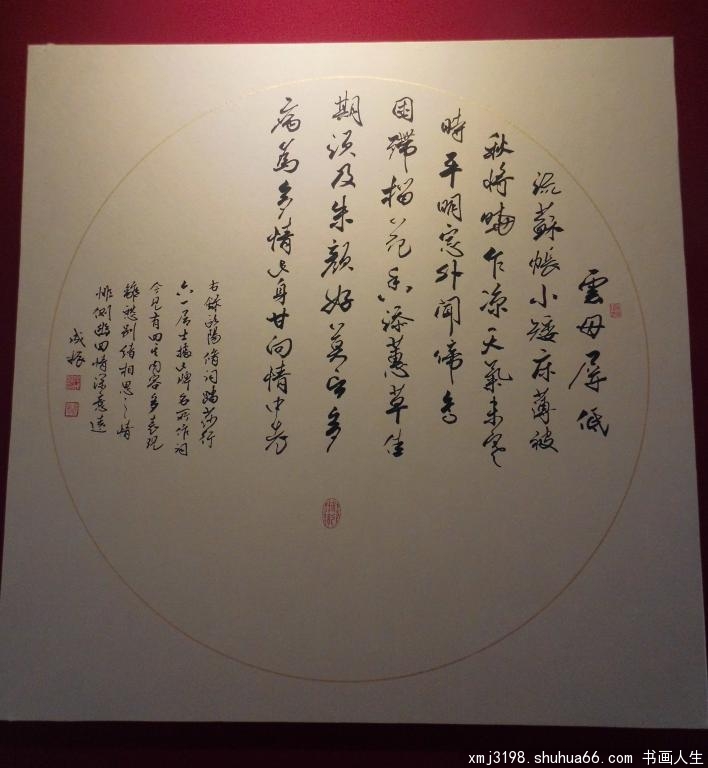 雲母屏低
流蘇帳小矮床薄被
秋將曉乍凉天氣未寒
時平明窓外聞啼鳥
困殢榴花香添蕙草佳
期須及朱顏好莫言多
病為多情此身甘向情中老
右錄歐陽脩詞踏莎行
六一居士據此牌子所作詞
今見有四其內容多表現
離愁別緒相思之情
悱惻情深意遠
成振
xmj3198.shuhua66.com 书画人生